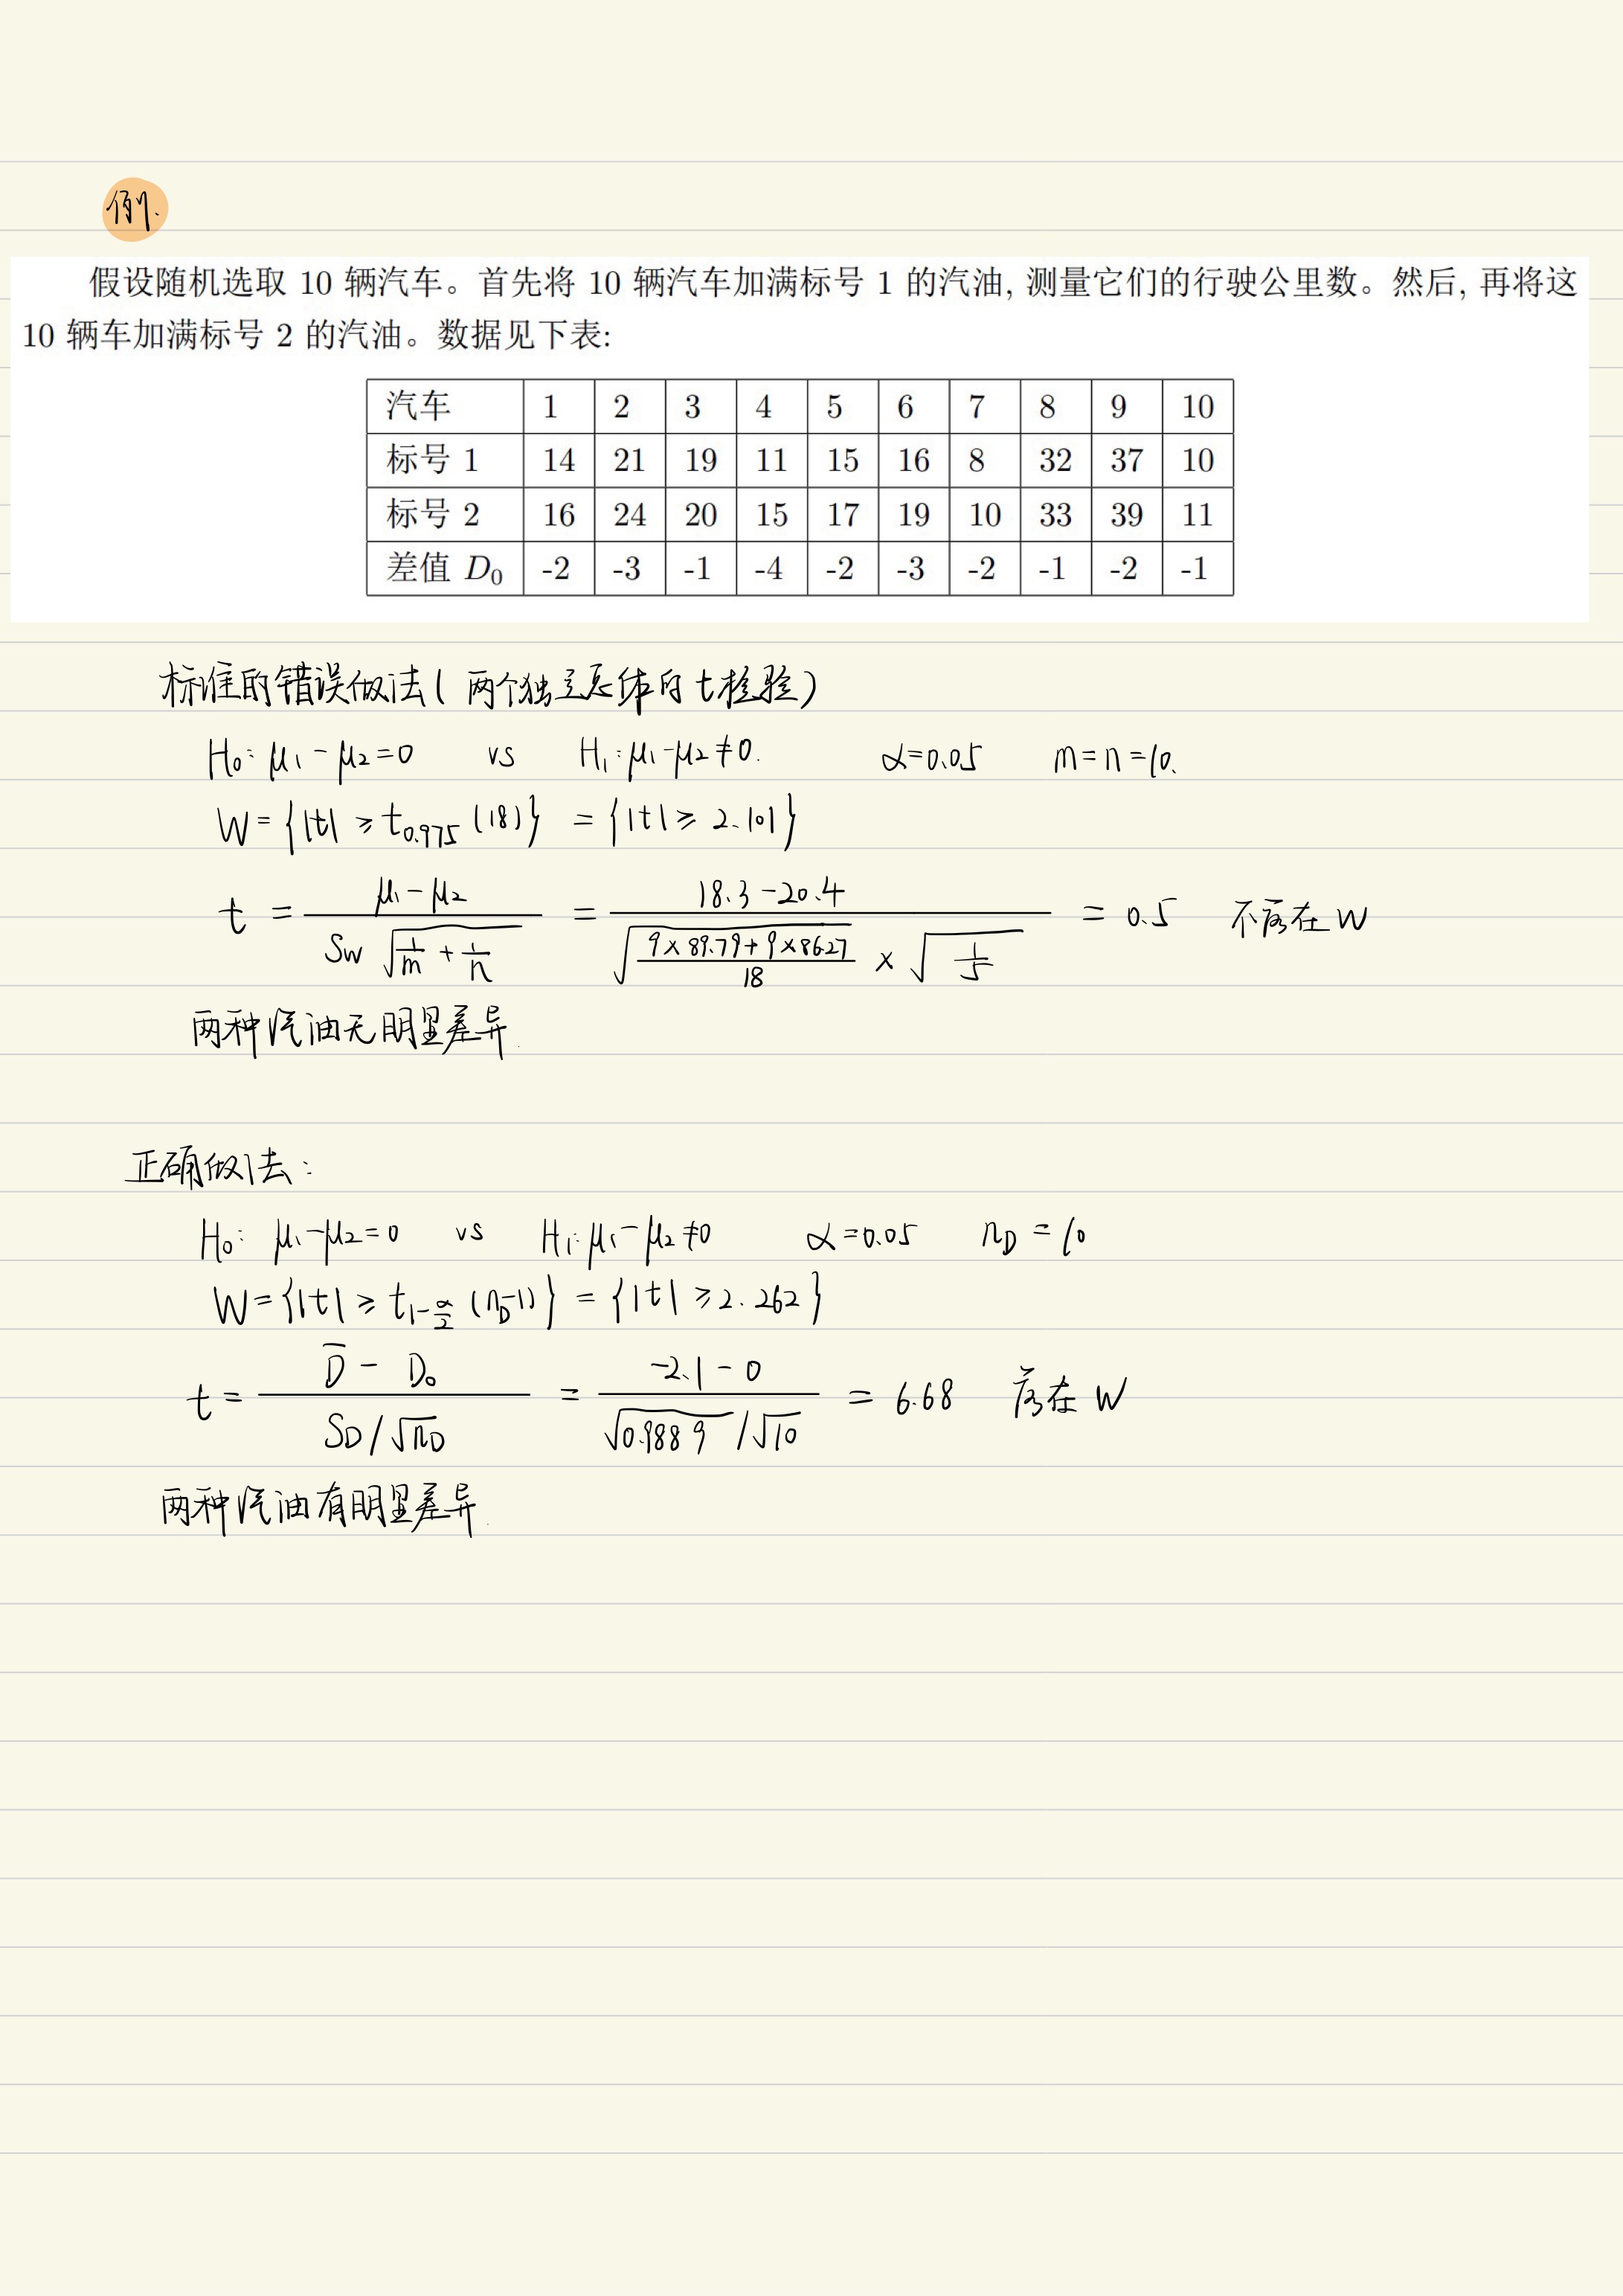 例.
假设随机选取 10 辆汽车。首先将 10 辆汽车加满标号 1 的汽油, 测量它们的行驶公里数。然后, 再将这
10 辆车加满标号 2 的汽油。数据见下表:
汽车 1 2 3 4 5 6 7 8 9 10
标号 1 14 21 19 11 15 16 8 32 37 10
标号 2 16 24 20 15 17 19 10 33 39 11
差值 D₀ -2 -3 -1 -4 -2 -3 -2 -1 -2 -1
标准的错误做法( 两个独立总体的 t检验)
H₀: μ₁-μ₂=0 vs H₁: μ₁-μ₂≠0. α=0.05 m=n=10.
W={|t| ≥ t₀.₉₇₅ (18)} = {|t| ≥ 2.101}
t = (μ₁-μ₂)/(Sw √(1/m + 1/n)) = (18.3-20.4)/(√((9×89.79+9×86.27)/18) × √(1/5)) = 0.5 不落在 W
两种汽油无明显差异.
正确做法:
H₀: μ₁-μ₂=0 vs H₁: μ₁-μ₂≠0 α=0.05 n_D=10
W={|t| ≥ t_{1-α/2} (n_D-1)} = {|t| ≥ 2.262}
t = (D̄ - D₀)/(S_D/√n_D) = (-2.1-0)/(√0.9889 /√10) = 6.68 落在 W
两种汽油有明显差异.